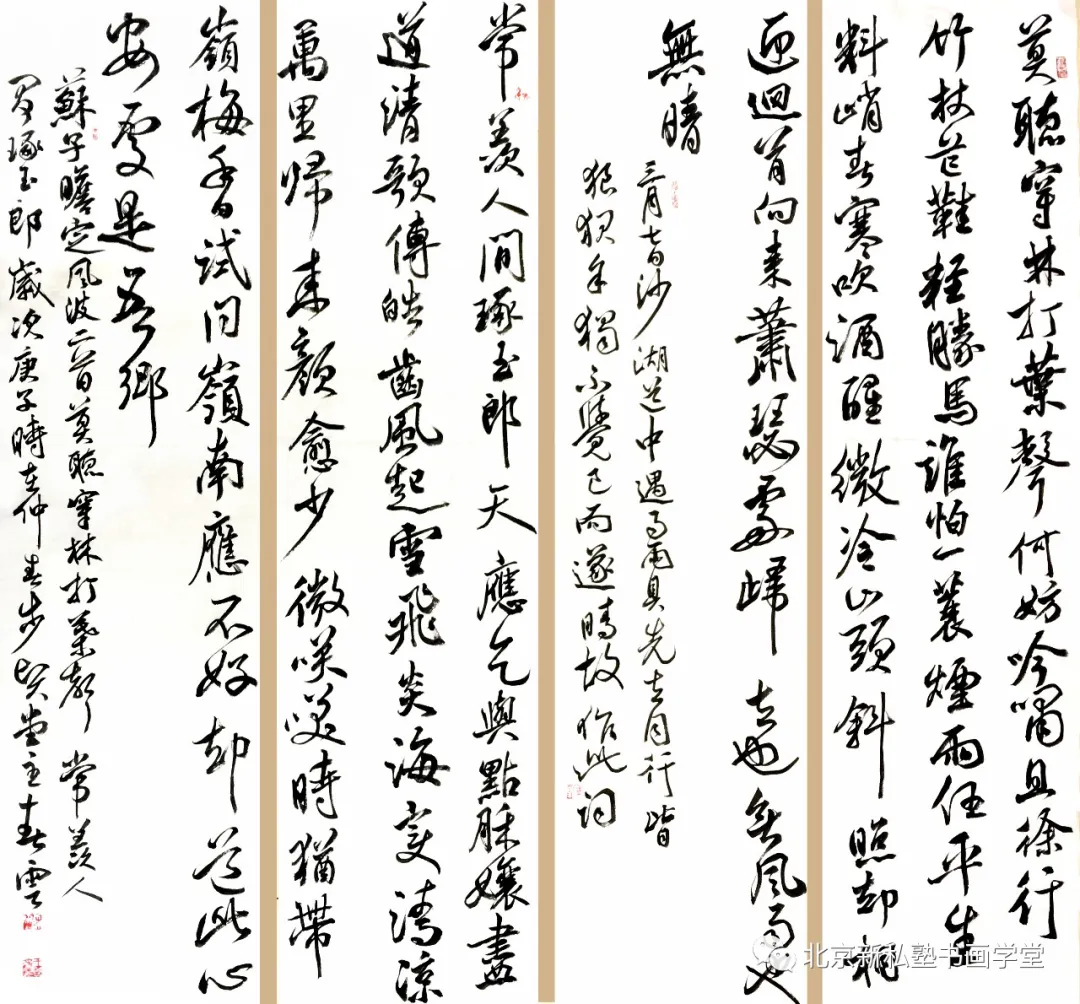 莫聽穿林打葉聲何妨吟嘯且徐行
竹杖芒鞋輕勝馬誰怕一蓑煙雨任平生
料峭春寒吹酒醒微冷山頭斜照却相
迎迴首向来蕭瑟處歸去也無風雨也
無晴
三月七日沙湖道中遇雨雨具先去同行皆
狼狽余獨不覺已而遂晴故作此詞
常羨人間琢玉郎天應乞與點酥孃盡
道清歌傳皓齒風起雪飛炎海變清涼
萬里歸来顏愈少微咲咲時猶帶
嶺梅香試問嶺南應不好却道此心
安處是吾鄉
蘇子瞻定風波二首莫聽穿林打葉聲 常羨人
間琢玉郎 歲次庚子時在仲春步賢堂主春雲
北京新私塾书画学堂